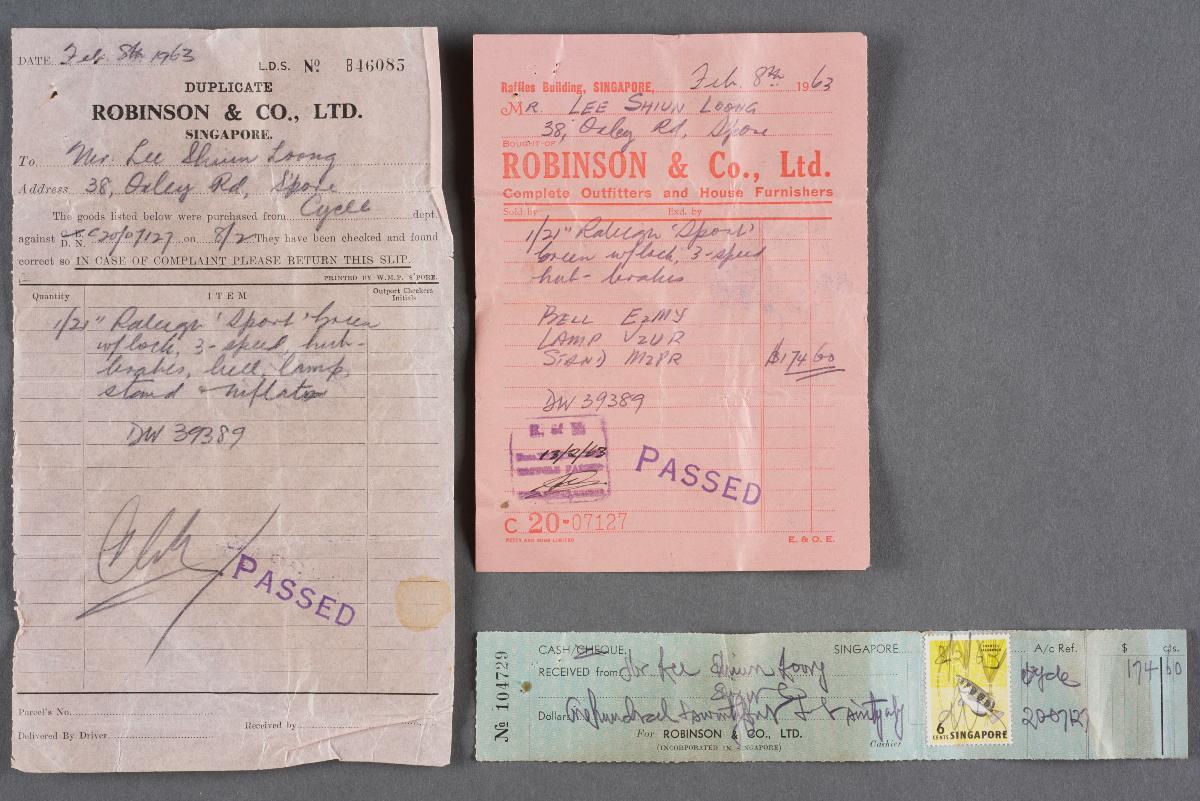 DATE Feb. 8th 1963
L.D.S. No B46085
DUPLICATE
ROBINSON & CO., LTD.
SINGAPORE.
To Mr. Lee Shiun Loong
Address 38, Oxley Rd, S'pore
The goods listed below were purchased from Cycle dept.
against D. N. C20/07127 on 8/2 They have been checked and found
correct so IN CASE OF COMPLAINT PLEASE RETURN THIS SLIP.
PRINTED BY W.M.P. S'PORE.
Quantity ITEM Outport Checkers Initials
1/21" Raleigh 'Sport' Green
w/lock, 3-speed, hub-
brakes, bell, lamp,
stand & inflator
DW 39389
PASSED
Parcel's No.
Received by
Delivered By Driver
Raffles Building, SINGAPORE, Feb. 8th 1963
MR. LEE SHIUN LOONG
38, Oxley Rd, S'pore
BOUGHT OF
ROBINSON & Co., Ltd.
Complete Outfitters and House Furnishers
Sold by Exd. by
1/21" Raleigh 'Sport'
Green w/lock, 3-speed
hub-brakes
BELL EZMY
LAMP VZUR
STAND MZPR $174 60
DW 39389
13/2/63
PASSED
C 20-07127
E. & O. E.
No 104729
CASH/CHEQUE. SINGAPORE 8/2/63 A/c Ref. $ cts.
RECEIVED from Mr Lee Shiun Loong Cycle 174 60
Dollars One hundred & seventy four & cents sixty only
For ROBINSON & CO., LTD.
(INCORPORATED IN SINGAPORE)
Cashier
6 CENTS SINGAPORE